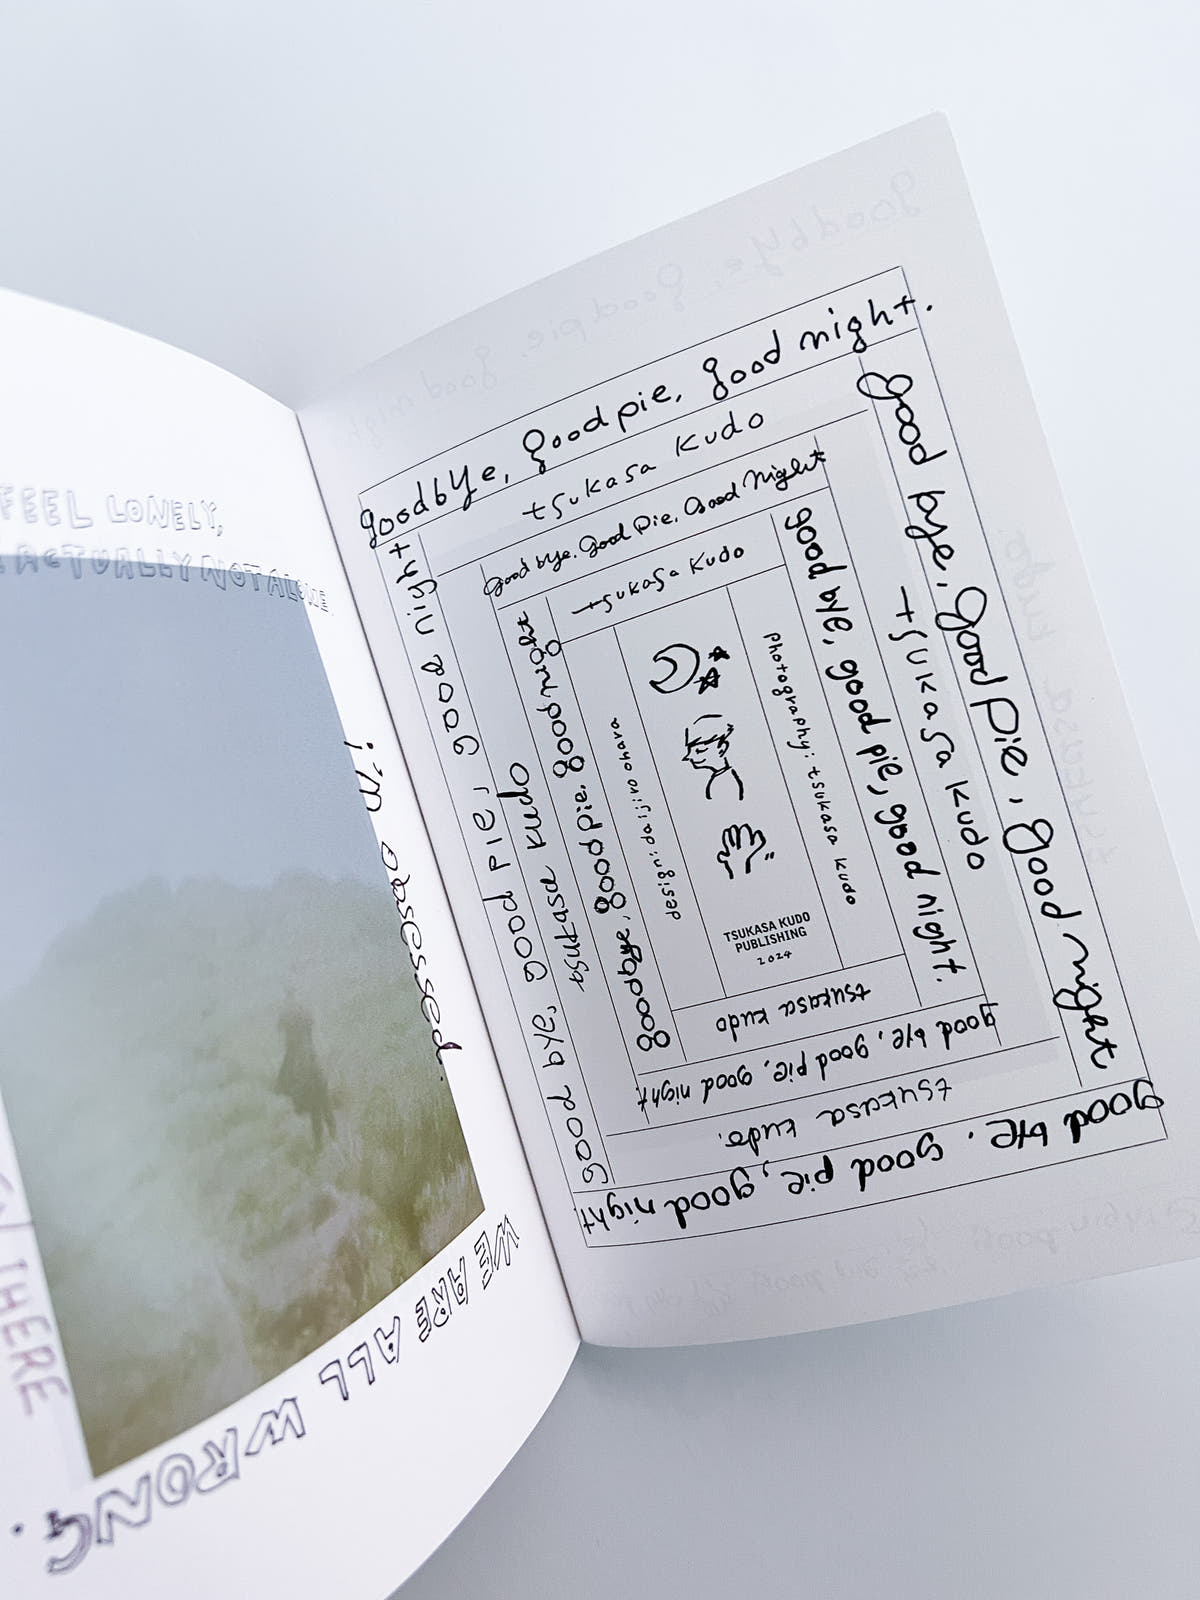 FEEL LONELY,
ACTUALLY NOT ALONE.
i'm obsessed.
WE ARE ALL WRONG.
THERE
goodbye, good pie, good night.
good bye, good pie, good night
good bye. good pie, good night.
good bye, good pie, good night
tsukasa kudo
tsukasa kudo
tsukasa kudo.
tsukasa kudo
Good bye. Good Pie. Good Night
good bye, good pie, good night.
good bye, good pie, good night
goodbye, good pie, good night
tsukasa kudo
photography: tsukasa kudo
tsukasa kudo
design: daijiro ohara
TSUKASA KUDO
PUBLISHING
2024